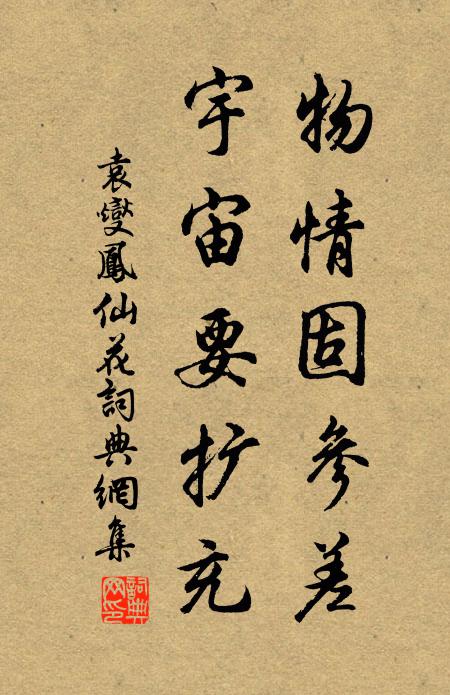 物情固參差
宇宙要扩充
袁燮鳳仙花詞典網集
詞典網印